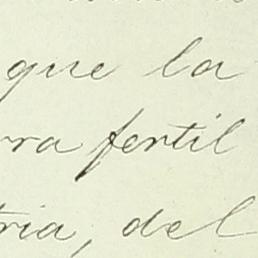 que la
rra fertil
tria, del